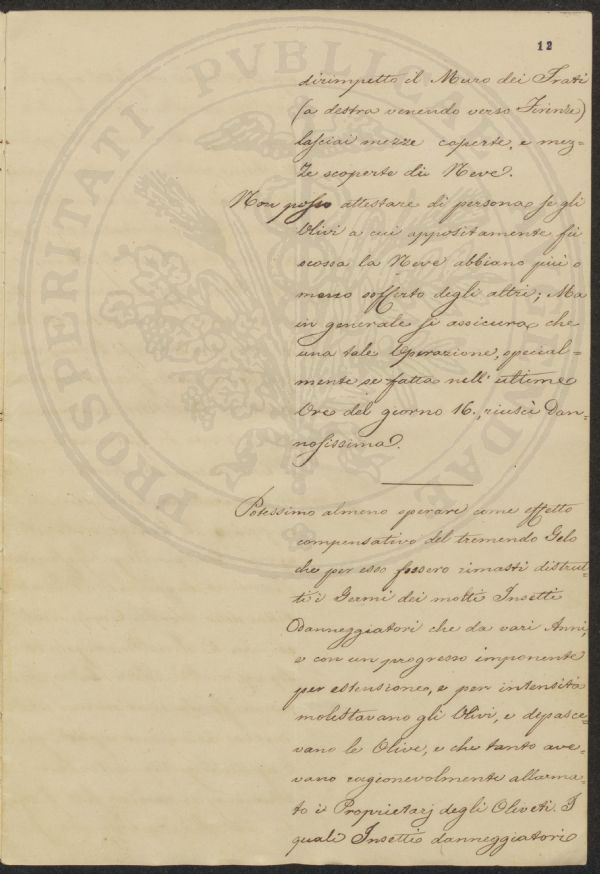 12
dirimpetto il Muro dei Frati
(a destra venendo verso Firenze)
lasciai mezze coperte, e mez=
ze scoperte di Neve.
Non posso attestare di persona se gli
Olivi a cui appositamente fù
scossa la Neve abbiano più o
meno sofferto degli altri; Ma
in generale si assicura che
una tale Operazione, special=
mente se fatta nell' ultime
Ore del giorno 16., riuscì dan=
nosissima.
Potessimo almeno sperare come effetto
compensativo del tremendo Gelo
che per esso fossero rimasti distrut=
ti i Germi dei molti Insetti
Danneggiatori che da vari Anni,
e con un progresso imponente
per estensione, e per intensità
molestavano gli Olivi, e depasce=
vano le Olive, e che tanto ave=
vano ragionevolmente allarma=
to i Proprietarj degli Oliveti. I
quali Insetti danneggiatori
PROSPERITATI PVBLICAE AVGENDAE